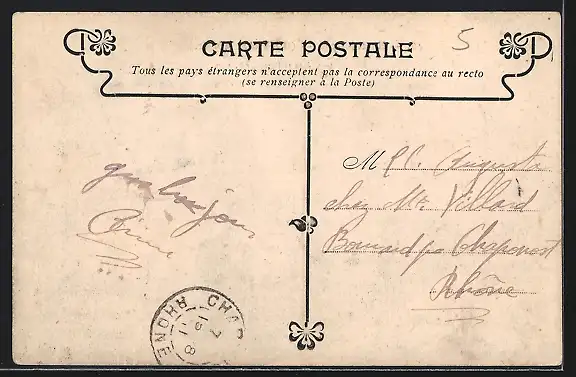 5
CARTE POSTALE
Tous les pays étrangers n'acceptent pas la correspondance au recto
(se renseigner à la Poste)
bonjour
M Augusta
chez Mr Villard
par Chaponost
Rhône
RHONE